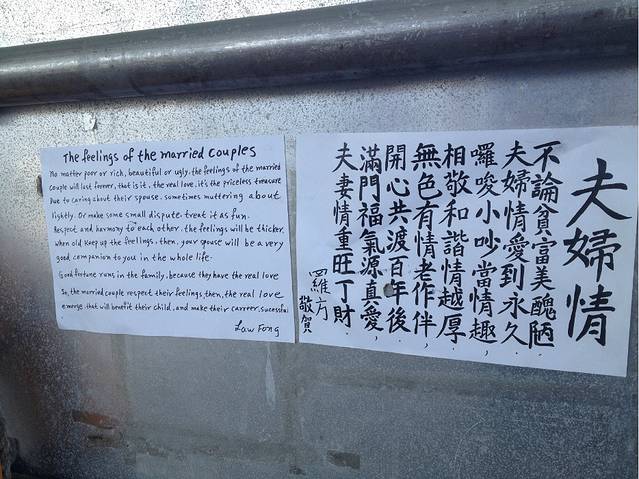 The feelings of the married couples
No matter poor or rich, beautiful or ugly, the feelings of the married
couple will last forever, that is it, the real love, it's the priceless treasure
Due to caring about their spouse, sometimes muttering about
lightly. Or make some small dispute, treat it as fun.
Respect and harmony to each other, the feelings will be thicker.
When old keep up the feelings, then, your spouse will be a very
good companion to you in the whole life.
Good fortune runs in the family, because they have the real love
So, the married couple respect their feelings, then, the real love
emerge, that will benefit their child, and make their carrer, successful
Law Fong
夫婦情
不論貧富美醜陋
夫婦情愛到永久.
囉唆小吵當情趣,
相敬和諧情越厚
無色有情老作伴,
開心共渡百年後
滿門福氣源真愛,
夫妻情重旺丁財
羅方
敬賀